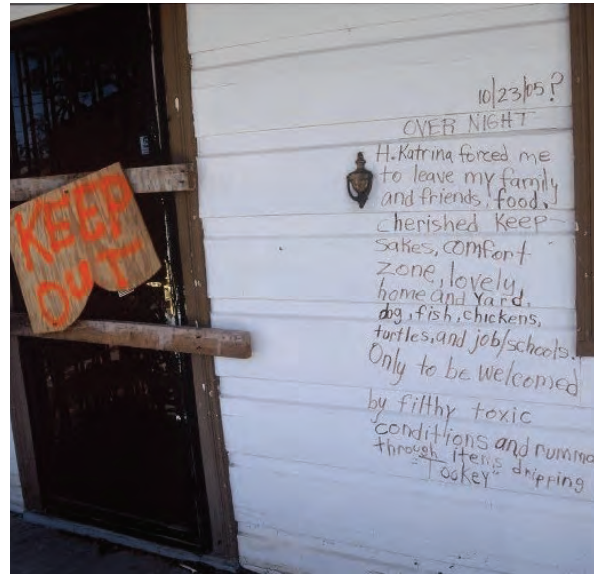 KEEP
OUT
10/23/05?
OVER NIGHT
H. Katrina forced me
to leave my family
and friends, food,
cherished keep-
sakes, comfort
zone, lovely
home and yard,
dog, fish, chickens,
turtles, and job/schools.
Only to be welcomed
by filthy toxic
conditions and
through items dripping
"Tookey"